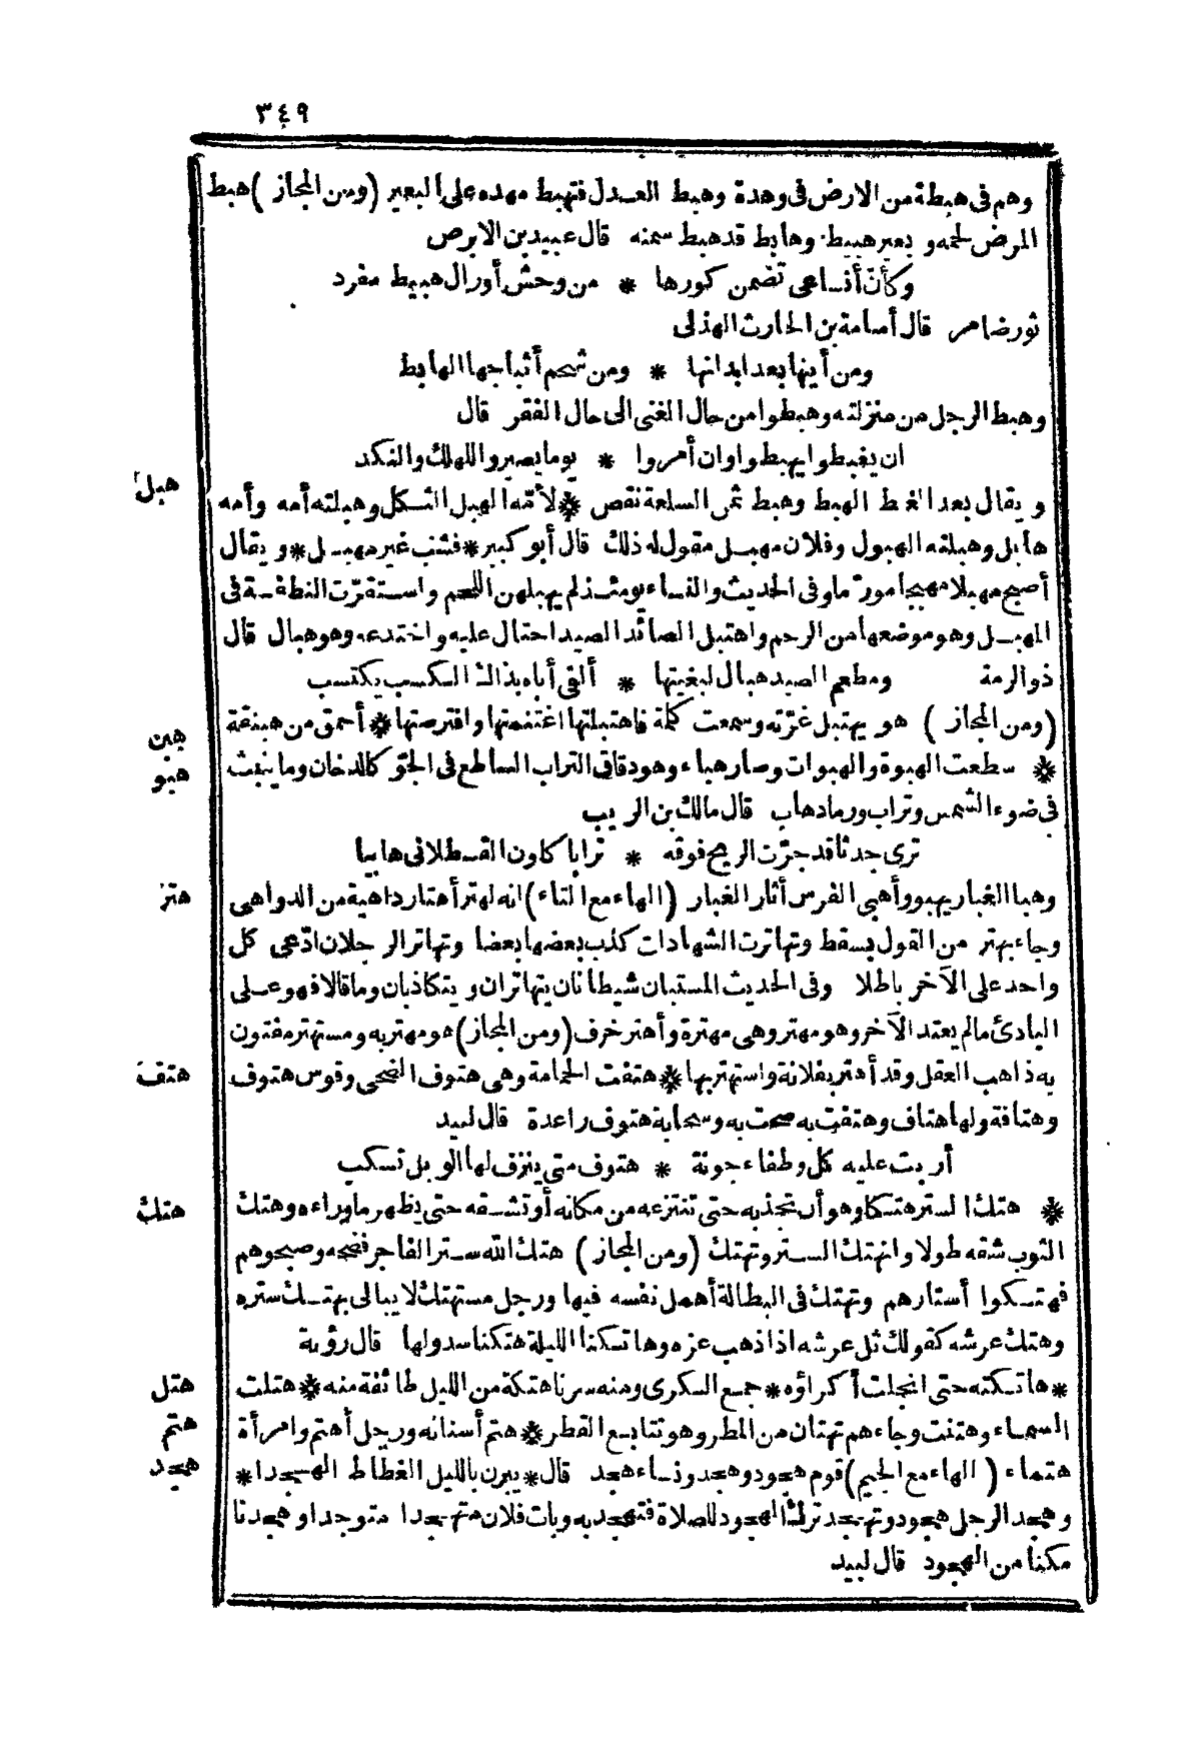 ٣٤٩
وهم في هبطة من الارض في وهدة وهبط العدل فتهبط مهده على البعير (ومن المجاز) هبط
المرض لحمه وبعير هبيط وهابط قد هبط سمنه قال عبيد بن الابرص
وكأنّ أنساعى تضمن كورها * من وحش أورال هبيط مفرد
ثور ضامر قال أسامة بن الحارث الهذلى
ومن أينها بعد ابدانها * ومن شحم أثباجها الهابط
وهبط الرجل من منزلته وهبطوا من حال الغنى الى حال الفقر قال
ان يغبطوا يهبطوا وان أمروا * يوما يصيروا للهلك والنكد
هبل
ويقال بعد الغبط الهبط وهبط ثمن السلعة نقص * لأمّه الهبل الثكل وهبلته أمه وأمه
هابل وهبلته الهبول وفلان مهبل مقول له ذلك قال أبو كبير * فشب غير مهبل * ويقال
أصبح مهبلا مهيجا مورّما وفى الحديث والنساء يومئذ لم يهبلهن اللحم واستقرّت النطفة فى
المهبل وهو موضعها من الرحم واهتبل الصائد الصيد احتال عليه واختدعه وهو هبال قال
ذو الرمة ومطعم الصيد هبال لبغيتها * ألفى أباه بذاك الكسب يكتسب
هبن
(ومن المجاز) هو يهتبل غرّته وسمعت كلمة فاهتبلتها اغتنمتها وافترصتها * أحمق من هبنقة
هبو
* سطعت الهبوة والهبوات وصار هباء وهو دقاق التراب الساطع فى الجوّ كالدخان وما ينبث
فى ضوء الشمس وتراب ورماد هاب قال مالك بن الريب
ترى جدثا قد جرّت الريح فوقه * ترابا كلون القسطلانى هابيا
هتر
وهبا الغبار يهبو وأهبى الفرس أثار الغبار (الهاء مع التاء) انه لهتر أهتار داهية من الدواهى
وجاء بهتر من القول بسقط وتهاترت الشهادات كذب بعضها بعضا وتهاتر الرجلان ادّعى كل
واحد على الآخر باطلا وفى الحديث المستبان شيطانان يتهاتران ويتكاذبان وما قالا فهو على
البادئ ما لم يعتد الآخر وهو مهتر وهى مهترة وأهتر خرف (ومن المجاز) هو مهتر به ومستهتر مفتون
هتف
به ذاهب العقل وقد أهتر بفلانة واستهتر بها * هتفت الحمامة وهى هتوف الضحى وقوس هتوف
وهتافة ولها هتاف وهتفت به صحت به وسحابة هتوف راعدة قال لبيد
أربت عليه كل وطفاء جونة * هتوف متى ينزف لها الوبل تسكب
هتك
* هتك الستر هتكا وهو أن تجذبه حتى تنتزعه من مكانه أو تشقه حتى يظهر ما وراءه وهتك
الثوب شقه طولا وانهتك الستر وتهتك (ومن المجاز) هتك الله ستر الفاجر فضحه وصبحوهم
فهتكوا أستارهم وتهتك فى البطالة أهمل نفسه فيها ورجل مستهتك لا يبالى بهتك ستره
وهتك عرشه كقولك ثل عرشه اذا ذهب عزه وهاتكنا الليلة هتكنا سدولها قال رؤبة
هتل
* هاتكته حتى انجلت أكراؤه * جمع الكرى ومنه سرنا هتكة من الليل طائفة منه * هتلت
هتم
السماء وهتنت وجاءهم تهتان من المطر وهو تتابع القطر * هتم أسنانه ورجل أهتم وامرأة
هجد
هتماء (الهاء مع الجيم) قوم هجود وهجد ونساء هجد قال * يبرن بالليل الغطاط الهجدا *
وهجد الرجل هجودا وتهجد ترك الهجود للصلاة فتهجد به وبات فلان متهجدا متوجدا وهجدنا
مكنا من الهجود قال لبيد